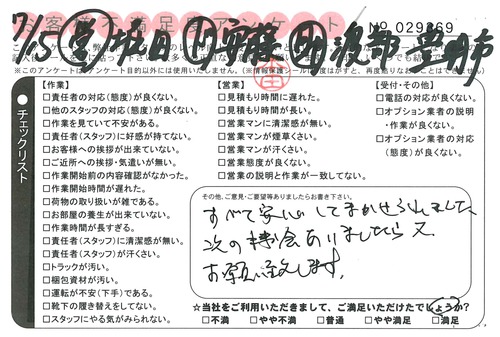 お客様不満足度アンケート
No 029869
7/5 堀日 安藤 渡部 豊
チェックリスト
【作業】
□責任者の対応(態度)が良くない。
□他のスタッフの対応(態度)が良くない。
□作業を見ていて不安がある。
□責任者(スタッフ)に好感が持てない。
□お客様への挨拶が出来ていない。
□ご近所への挨拶・気遣いが無い。
□作業開始前の内容確認がなかった。
□作業開始時間が遅れた。
□荷物の取り扱いが雑である。
□お部屋の養生が出来ていない。
□作業時間が長すぎる。
□責任者(スタッフ)に清潔感が無い。
□責任者(スタッフ)が汗くさい。
□トラックが汚い。
□梱包資材が汚い。
□運転が不安(下手)である。
□靴下の履き替えをしてない。
□スタッフにやる気がみられない。
【営業】
□見積もり時間に遅れた。
□見積もり時間が長い。
□営業マンに清潔感が無い。
□営業マンが煙草くさい。
□営業マンが汗くさい。
□営業態度が良くない。
□営業の説明と作業が一致してない。
【受付・その他】
□電話の対応が良くない。
□オプション業者の説明
・作業が良くない。
□オプション業者の対応
(態度)が良くない。
その他、ご意見・ご要望等ありましたらお書き下さい。
すべて安心してまかせられました。
次の機会ありましたら又
お願い致します。
☆当社をご利用いただきまして、ご満足いただけたでしょうか?
□不満 □やや不満 □普通 □やや満足 □満足